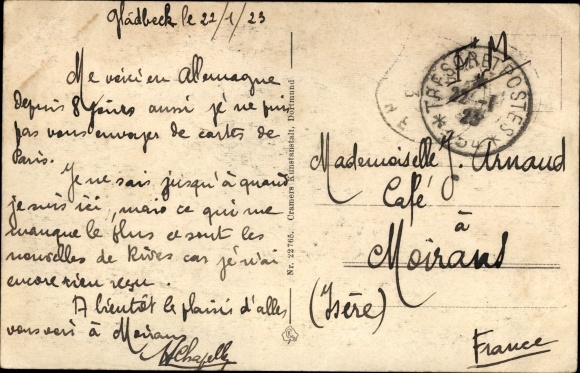 Gladbeck le 22/1/23
Me voici en Allemagne
depuis 8 jours aussi je ne puis
pas vous envoyer de cartes de
Paris.
Je ne sais jusqu'à quand
je suis ici, mais ce qui me
manque le plus ce sont les
nouvelles de Rives car je n'ai
encore rien reçu.
A bientôt le plaisir d'aller
vous voir à Moirans
Nr. 22765. Cramers Kunstanstalt, Dortmund
F M
TRESOR ET POSTES
22 - 1
23
*
*
Mademoiselle J. Arnaud
Café
à
Moirans
(Isère)
France